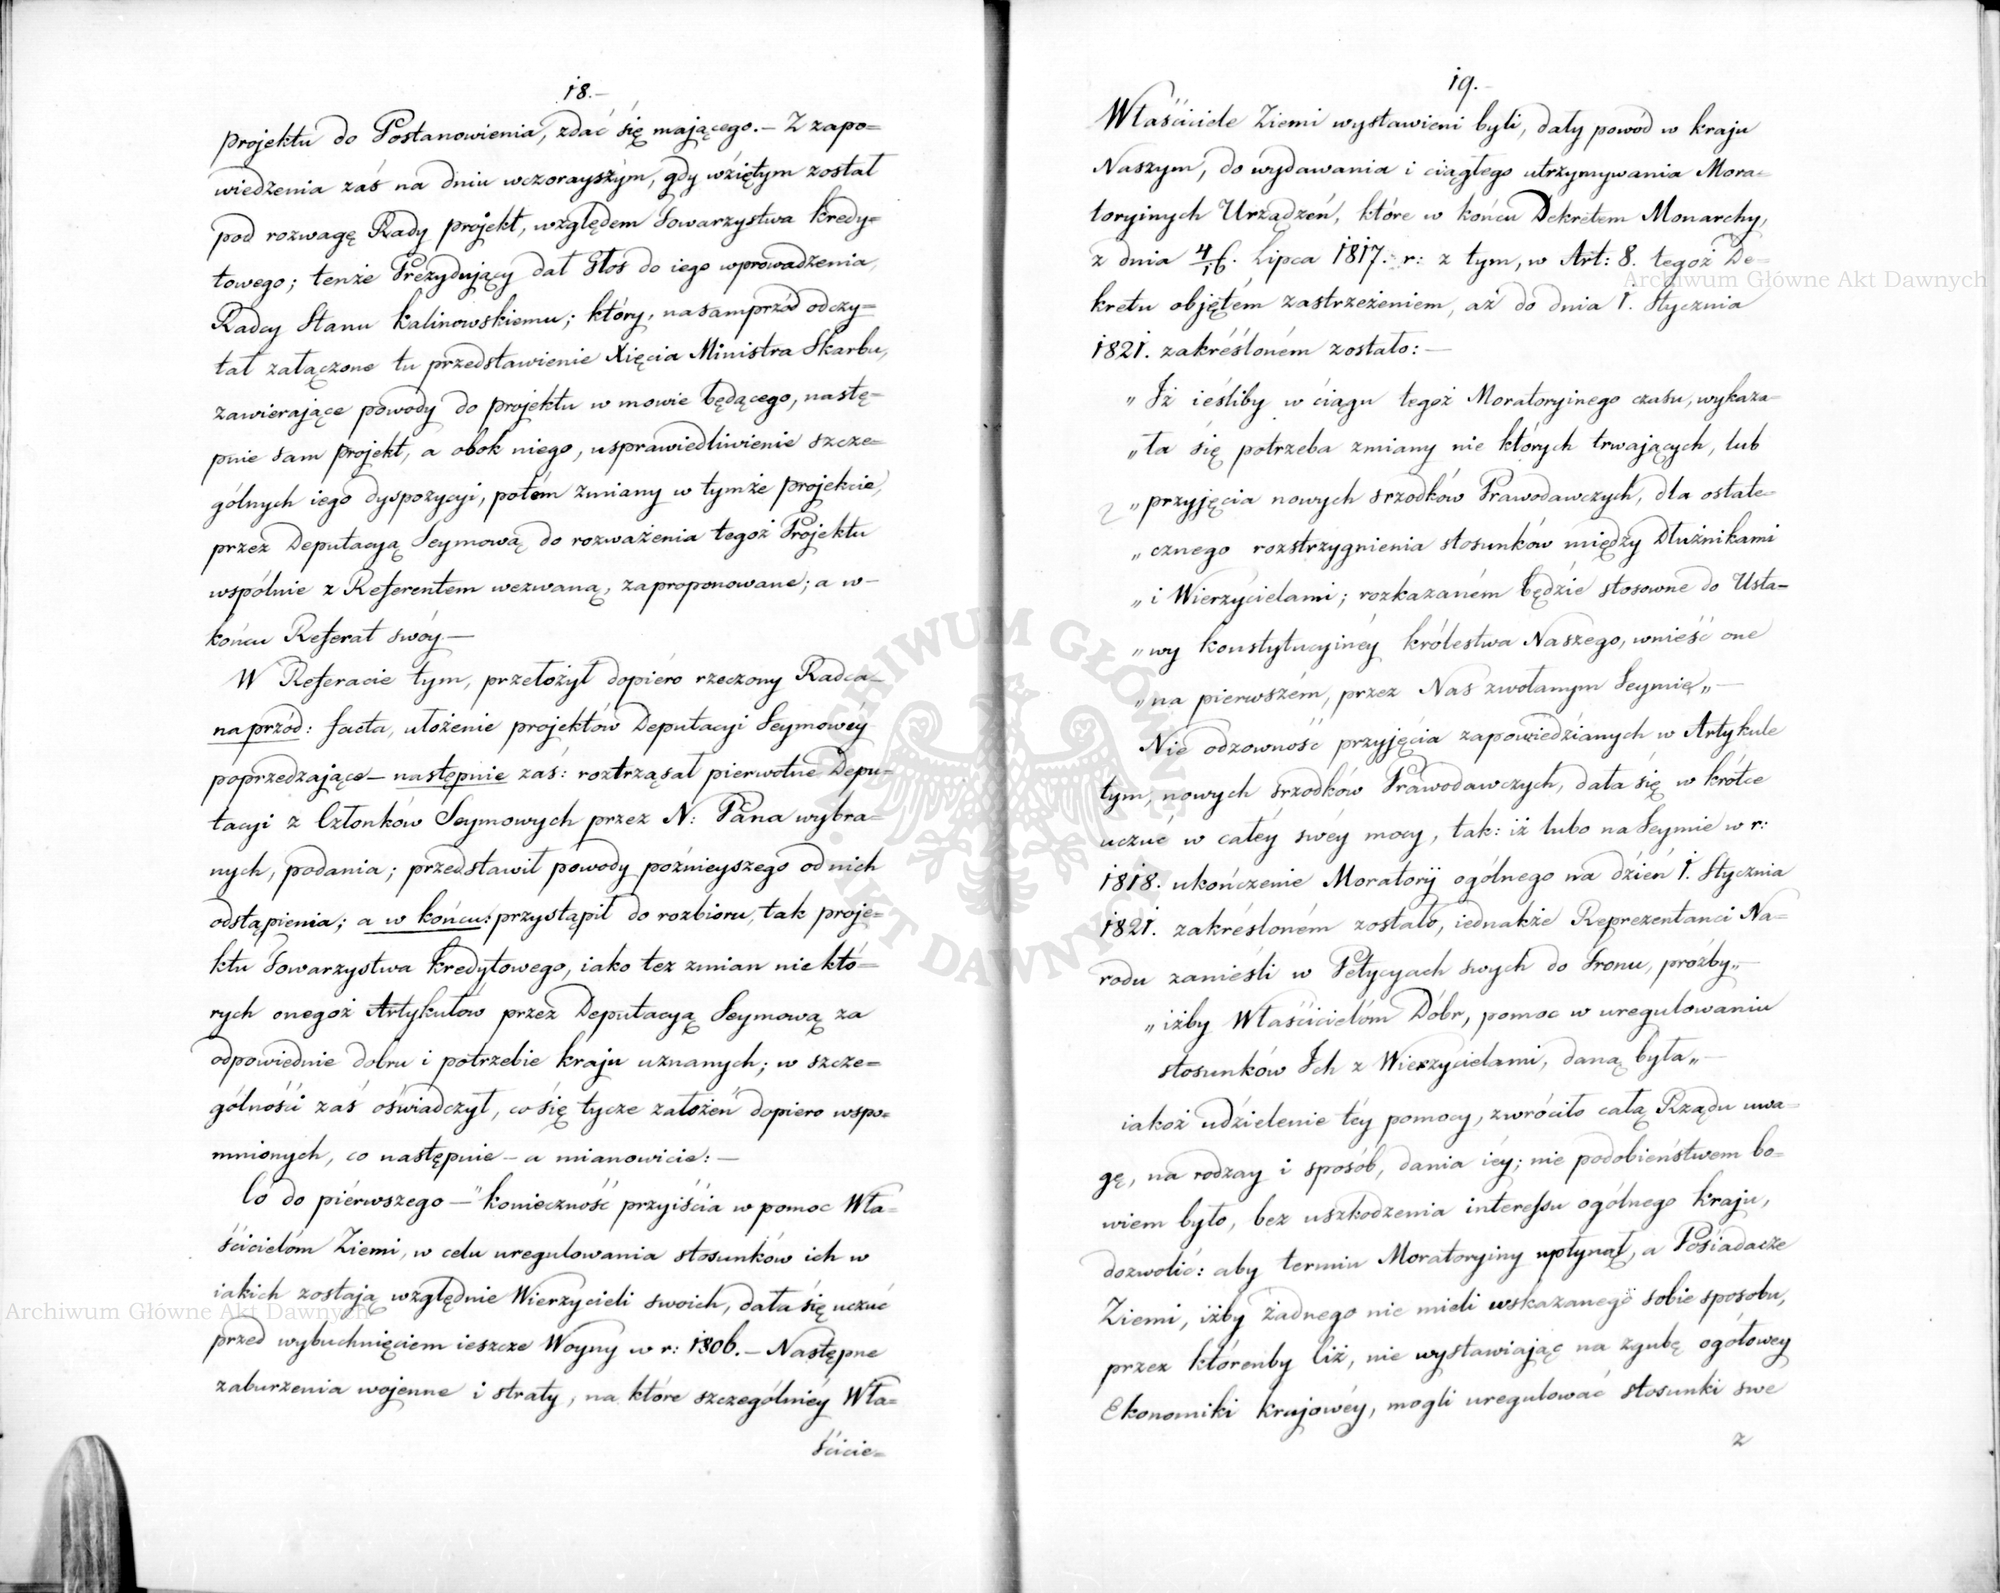 18.–
projektu do Postanowienia, zdać się mającego.– Z zapo=
wiedzenia zaś na dniu wczorayszym, gdy wziętym został
pod rozwagę Rady projekt, względem Towarzystwa kredy=
towego; tenże Prezydujący dał Głos do iego wprowadzenia,
Radcy Stanu Kalinowskiemu; który, nasamprzód odczy=
tał załączone tu przedstawienie Xięcia Ministra Skarbu,
zawierające powody do projektu w mowie będącego, nastę=
pnie sam projekt, a obok niego, usprawiedliwienie szcze=
gólnych iego dyspozycyi, potém zmiany w tymże projekcie,
przez Deputacyą Seymową do rozważenia tegoż Projektu
wspólnie z Referentem wezwaną, zaproponowane; a w–
końcu Referat swóy.–
W Referacie tym, przełożył dopiéro rzeczony Radca–
naprzód: facta, ułożenie projektów Deputacyi Seymowéy
poprzedzające– następnie zaś: roztrząsał pierwotne Depu=
tacyi z Członków Seymowych przez N: Pana wybra=
nych, podania; przedstawił powody poźnieyszego od nich
odstąpienia; a w końcu: przystąpił do rozbioru, tak proje=
ktu Towarzystwa kredytowego, iako też zmian niektó=
rych onegoż Artykułów przez Deputacyą Seymową za
odpowiednie dobru i potrzebie kraju uznanych; w szcze=
gólności zaś oświadczył, co się tycze założeń dopiero wspo=
mnionych, co następnie – a mianowicie: –
Co do piérwszego –" konieczność przyiścia w pomoc Wła=
ścicielóm Ziemi, w celu uregulowania stosunków ich w
iakich zostają względnie Wierzycieli swoich, dała się uczuć
przed wybuchnięciem ieszcze Woyny w r: 1806.– Następne
zaburzenia wojenne i straty, na które szczególniéy Wła=
ścicie=
19.–
Właściciele Ziemi wystawieni byli, dały powód w kraju
Naszym, do wydawania i ciągłego utrzymywania Mora=
toryinych Urządzeń, które w końcu Dekretem Monarchy,
z dnia 4/16. Lipca 1817. r: z tym, w Art: 8. tegoż De=
kretu objętém zastrzeżeniem, aż do dnia 1. Stycznia
1821. zakréślóném zostało: –
„ Iż ieśliby w ciągu tegoż Moratoryinego czasu, wykaza=
„ła się potrzeba zmiany nie których trwających, lub
„przyjęcia nowych srzodków Prawodawczych, dla ostate=
„cznego rozstrzygnienia stosunków między Dłużnikami
„i Wierzycielami; rozkazaném będzie stosowne do Usta=
„wy konstytucyinéy królestwa Naszego, wnieść one
„na pierwszém, przez Nas zwołanym Seymie„ –
Nie odzowność przyjęcia zapowiedzianych w Artykule
tym, nowych srzodków Prawodawczych, dała się w krótce
uczuć w całéy swéy mocy, tak: iż lubo na Seymie w r:
1818. ukończenie Moratorij ogólnego na dzień 1. Stycznia
1821. zakréślóném zostało, iednakże Reprezentanci Na=
rodu zanieśli w Petycyach swych do Tronu, prózby„–
„iżby Właścicielóm Dóbr, pomoc w uregulowaniu
stosunków Ich z Wierzycielami, daną była„–
iakoż udzielenie téy pomocy, zwróciło całą Rządu uwa=
gę, na rodzay i sposób, dania iéy; nie podobieństwem bo=
wiem było, bez uszkodzenia interessu ogólnego kraju,
dozwolić: aby termin Moratoryiny upłynął, a Posiadacze
Ziemi, iżby żadnego nie mieli wskazanego sobie sposobu,
przez którenby Ciż, nie wystawiając na zgubę ogółowey
Ekonomiki krajowéy, mogli uregulować stosunki swe
z
Archiwum Główne Akt Dawnych
Archiwum Główne Akt Dawnych
ARCHIWUM GŁÓWNE AKT DAWNYCH W